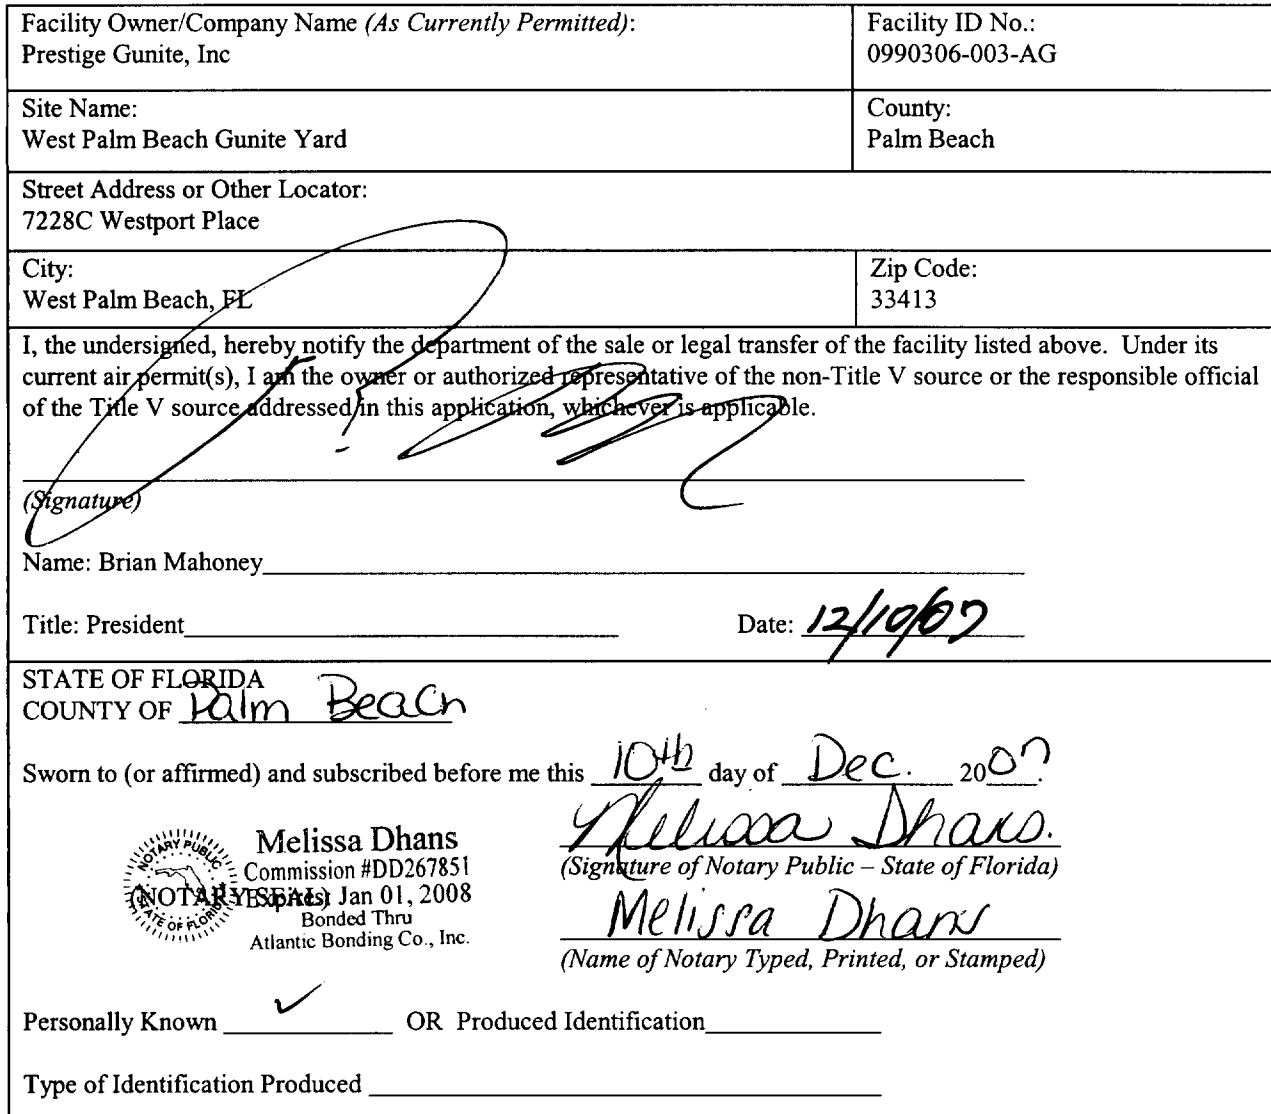 Facility Owner/Company Name (As Currently Permitted):
Prestige Gunite, Inc
Facility ID No.:
0990306-003-AG
Site Name:
West Palm Beach Gunite Yard
County:
Palm Beach
Street Address or Other Locator:
7228C Westport Place
City:
West Palm Beach, FL
Zip Code:
33413
I, the undersigned, hereby notify the department of the sale or legal transfer of the facility listed above. Under its
current air permit(s), I am the owner or authorized representative of the non-Title V source or the responsible official
of the Title V source addressed in this application, whichever is applicable.
(Signature)
Name: Brian Mahoney
Title: President
Date: 12/10/07
STATE OF FLORIDA
COUNTY OF Palm Beach
Sworn to (or affirmed) and subscribed before me this 10th day of Dec. 2007.
Melissa Dhans.
(Signature of Notary Public – State of Florida)
NOTARY PUBLIC
STATE OF FLORIDA
Melissa Dhans
Commission #DD267851
(NOTARY SEAL)
Expires Jan 01, 2008
Bonded Thru
Atlantic Bonding Co., Inc.
Melissa Dhans
(Name of Notary Typed, Printed, or Stamped)
Personally Known ✓ OR Produced Identification
Type of Identification Produced